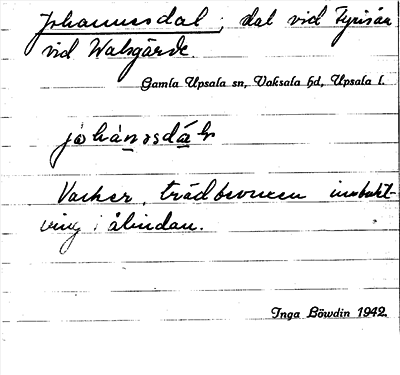 Johannesdal, dal vid Fyrisån
vid Valsgärde.
Gamla Upsala sn, Vaksala hd, Upsala l.
Vacker, trädbevuxen inbukt-
ning i ålindan.
Inga Löwdin 1942.